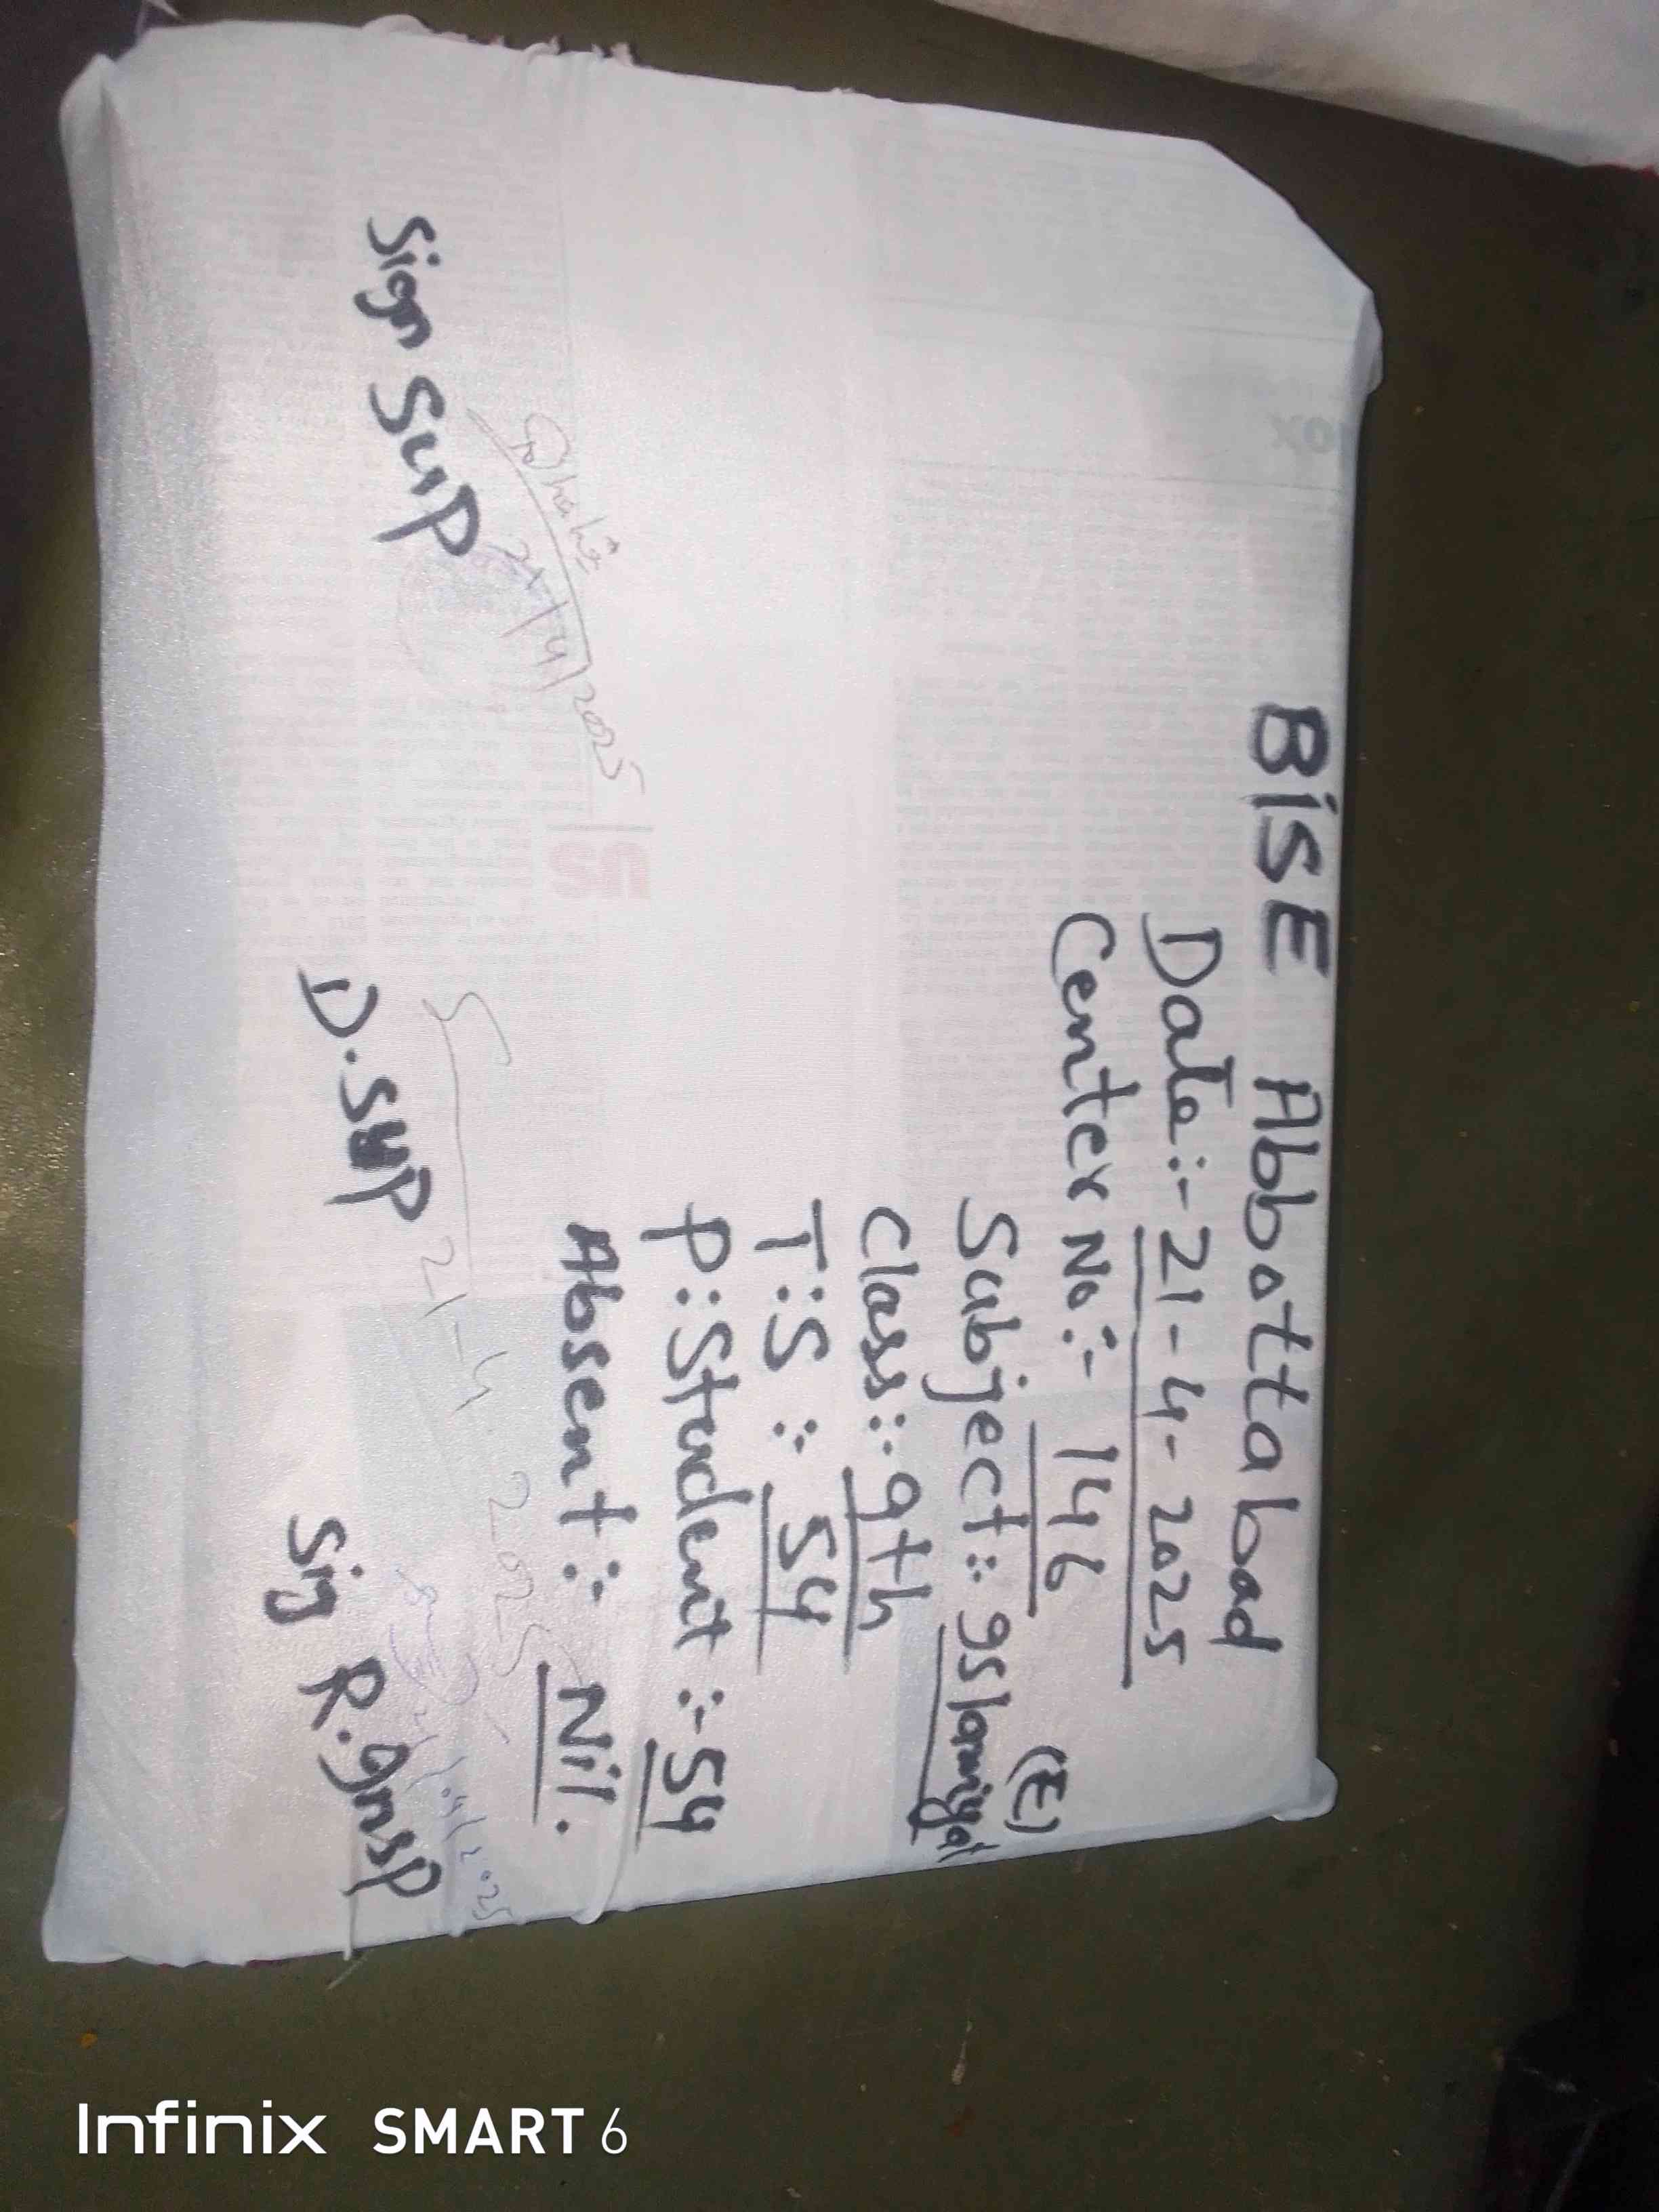 BISE Abbottabad
Date:- 21-4-2025
Center No:- 146
(E)
Subject:: Islamiyat
Class:: 9th
T:S :- 54
P:Student :- 54
Absent :- Nil.
Sign Sup
21/4/2025
D.Sup
21-4-2025
Sig R.Insp
21/04/2025
US
Infinix SMART 6